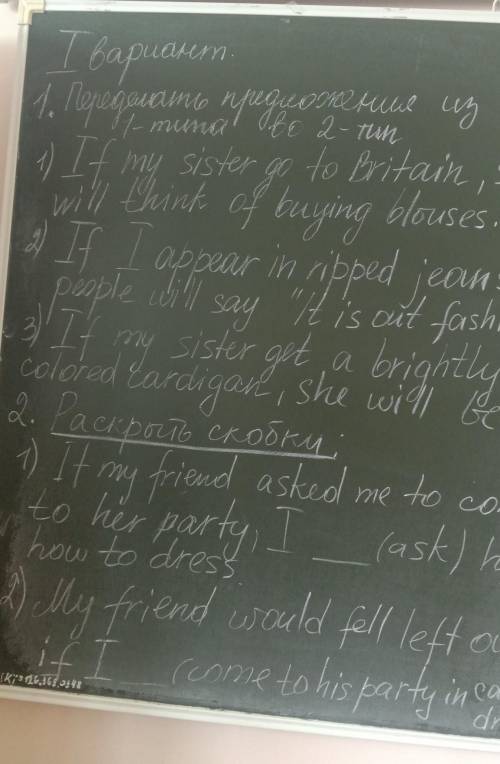 I вариант.
1. Переделать предложения из
1-типа во 2-тип
1) If my sister go to Britain,
will think of buying blouses.
2) If I appear in ripped jeans
people will say "It is out fash
3) If my sister get a brightly
colored cardigan, she will be
2. Раскрыть скобки:
1) If my friend asked me to co
to her party, I ___ (ask) h
how to dress
2) My friend would fell left o
if I ___ (come to his party in ca
dr